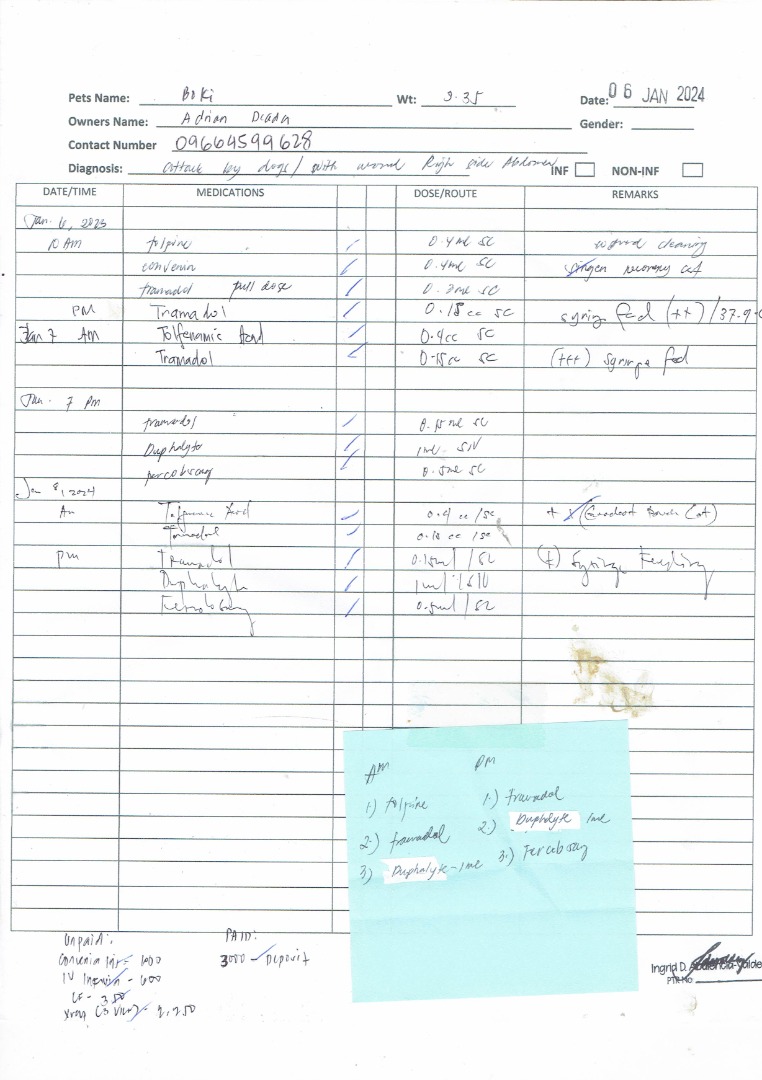 Pets Name: Boki Wt: 3.35 Date: 06 JAN 2024
Owners Name: Adrian Gender:
Contact Number 09664599628
Diagnosis: attack by dogs / with wound Righ side Abdomen INF NON-INF
DATE/TIME MEDICATIONS DOSE/ROUTE REMARKS
Jan. 6, 2023
10 AM tolpine 0.4ml SC wound cleaning
convenia 0.4ml SC recovery cat
tramadol full dose SC
PM Tramadol 0.18cc SC syringe fed (++) / 37.9
Jan 7 AM Tolfenamic Acid 0.4cc SC
Tramadol 0.18cc SC (+++) Syringe fed
Jan. 7 pm
tramadol 0.15ml SC
Duphalyte 1ml SIV
percobsang 0.5ml SC
Jan 8, 2024
Am Tolfenamic Acid 0.4 cc /SC
Tramadol 0.18 cc /SC
pm Tramadol 0.15ml / SC (+) Syringe Feeding
Duphalyte 1ml / SIV
0.5ml / SC
AM PM
1.) tolpine 1.) tramadol
2.) tramadol 2.) Duphalyte 1ml
3) Duphalyte - 1ml 3.) Fercobsang
Unpaid: PAID:
Convenia Inj - 1000 3000 - Deposit
IV - 600
CF - 350
Xray (3 View) - 2,250
Ingrid D.
PTR No.